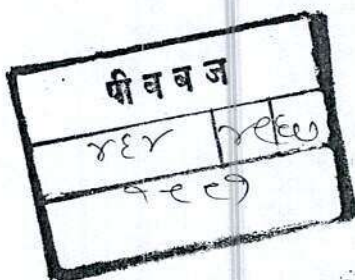 पी व ब ज
४६४ ४९ ६७
१९९१